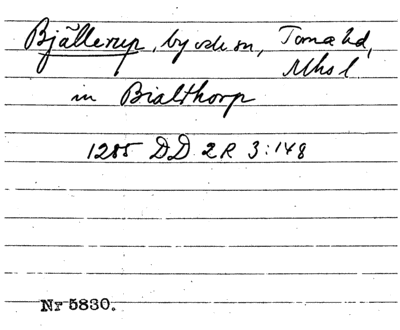 Bjällerup, by o sn, Torna hd,
Mhs l
in Bialthorp
1285 DD 2R 3:148
Nr 5830.